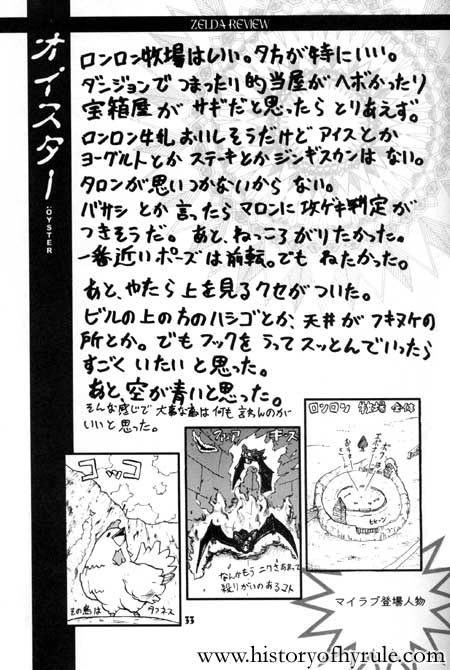 ZELDA REVIEW
オイスター
:OYSTER
ロンロン牧場はいい。夕方が特にいい。
ダンジョンでつまったり的当屋がヘボかったり
宝箱屋がサギだと思ったらとりあえず。
ロンロン牛乳おいしそうだけどアイスとか
ヨーグルトとかステーキとかジンギスカンはない。
タロンが思いつかないからない。
バサシとか言ったらマロンに攻ゲキ判定が
つきそうだ。あと、ねっころがりたかった。
一番近いポーズは前転。でもねたかった。
あと、やたら上を見るクセがついた。
ビルの上の方のハシゴとか、天井がフキヌケの
所とか。でもフックをうってスッとんでいったら
すごくいたいと思った。
あと、空が青いと思った。
そんな感じで大事な事は何も言えんのが
いいと思った。
コッコ
その鳥は
タフネス
ファイア
キース
なんかもうニクさあまって
殺りがいのあるコト
ロンロン牧場全体
ヒヒーン
マイラブ登場人物
33
www.historyofhyrule.com